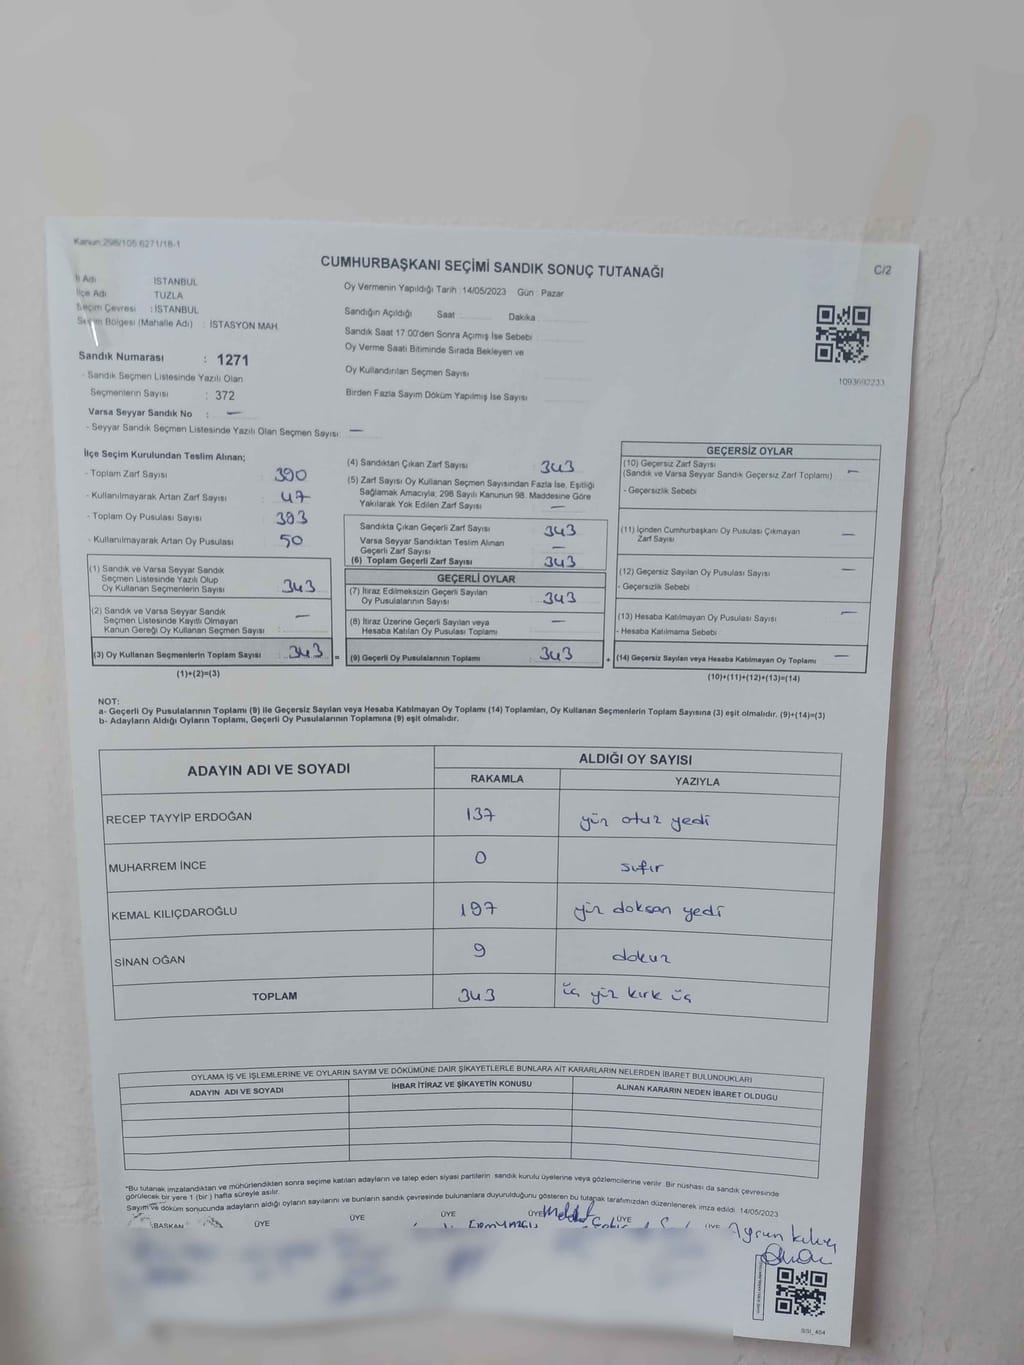 Kanun:298/105 6271/18-1
CUMHURBAŞKANI SEÇİMİ SANDIK SONUÇ TUTANAĞI
C/2
İl Adı İSTANBUL
İlçe Adı TUZLA
Seçim Çevresi : İSTANBUL
Seçim Bölgesi (Mahalle Adı) : İSTASYON MAH.
Sandık Numarası : 1271
- Sandık Seçmen Listesinde Yazılı Olan
Seçmenlerin Sayısı : 372
Varsa Seyyar Sandık No : —
- Seyyar Sandık Seçmen Listesinde Yazılı Olan Seçmen Sayısı: —
Oy Vermenin Yapıldığı Tarih : 14/05/2023 Gün : Pazar
Sandığın Açıldığı Saat ......... Dakika .........
Sandık Saat 17:00'den Sonra Açımış İse Sebebi
Oy Verme Saati Bitiminde Sırada Bekleyen ve
Oy Kullandırılan Seçmen Sayısı
Birden Fazla Sayım Döküm Yapılmış İse Sayısı
1093692233
İlçe Seçim Kurulundan Teslim Alınan;
- Toplam Zarf Sayısı : 390
- Kullanılmayarak Artan Zarf Sayısı : 47
- Toplam Oy Pusulası Sayısı : 393
- Kullanılmayarak Artan Oy Pusulası : 50
(1) Sandık ve Varsa Seyyar Sandık
Seçmen Listesinde Yazılı Olup
Oy Kullanan Seçmenlerin Sayısı : 343
(2) Sandık ve Varsa Seyyar Sandık
Seçmen Listesinde Kayıtlı Olmayan
Kanun Gereği Oy Kullanan Seçmen Sayısı : —
(3) Oy Kullanan Seçmenlerin Toplam Sayısı : 343
(1)+(2)=(3)
=
(4) Sandıktan Çıkan Zarf Sayısı 343
(5) Zarf Sayısı Oy Kullanan Seçmen Sayısından Fazla İse, Eşitliği
Sağlamak Amacıyla; 298 Sayılı Kanunun 98. Maddesine Göre
Yakılarak Yok Edilen Zarf Sayısı —
Sandıkta Çıkan Geçerli Zarf Sayısı 343
Varsa Seyyar Sandıktan Teslim Alınan
Geçerli Zarf Sayısı —
(6) Toplam Geçerli Zarf Sayısı 343
GEÇERLİ OYLAR
(7) İtiraz Edilmeksizin Geçerli Sayılan
Oy Pusulalarının Sayısı 343
(8) İtiraz Üzerine Geçerli Sayılan veya
Hesaba Katılan Oy Pusulası Toplamı —
(9) Geçerli Oy Pusulalarının Toplamı 343
+
GEÇERSİZ OYLAR
(10) Geçersiz Zarf Sayısı
(Sandık ve Varsa Seyyar Sandık Geçersiz Zarf Toplamı) —
- Geçersizlik Sebebi
(11) İçinden Cumhurbaşkanı Oy Pusulası Çıkmayan
Zarf Sayısı —
(12) Geçersiz Sayılan Oy Pusulası Sayısı —
- Geçersizlik Sebebi
(13) Hesaba Katılmayan Oy Pusulası Sayısı —
- Hesaba Katılmama Sebebi
(14) Geçersiz Sayılan veya Hesaba Katılmayan Oy Toplamı —
(10)+(11)+(12)+(13)=(14)
NOT:
a- Geçerli Oy Pusulalarının Toplamı (9) ile Geçersiz Sayılan veya Hesaba Katılmayan Oy Toplamı (14) Toplamları, Oy Kullanan Seçmenlerin Toplam Sayısına (3) eşit olmalıdır. (9)+(14)=(3)
b- Adayların Aldığı Oyların Toplamı, Geçerli Oy Pusulalarının Toplamına (9) eşit olmalıdır.
ADAYIN ADI VE SOYADI ALDIĞI OY SAYISI
RAKAMLA YAZIYLA
RECEP TAYYİP ERDOĞAN 137 yüz otuz yedi
MUHARREM İNCE 0 sıfır
KEMAL KILIÇDAROĞLU 197 yüz doksan yedi
SİNAN OĞAN 9 dokuz
TOPLAM 343 üç yüz kırk üç
OYLAMA İŞ VE İŞLEMLERİNE VE OYLARIN SAYIM VE DÖKÜMÜNE DAİR ŞİKAYETLERLE BUNLARA AİT KARARLARIN NELERDEN İBARET BULUNDUKLARI
ADAYIN ADI VE SOYADI İHBAR İTİRAZ VE ŞİKAYETİN KONUSU ALINAN KARARIN NEDEN İBARET OLDUĞU
*Bu tutanak imzalandıktan ve mühürlendikten sonra seçime katılan adayların ve talep eden siyasi partilerin sandık kurulu üyelerine veya gözlemcilerine verilir. Bir nüshası da sandık çevresinde
görülecek bir yere 1 (bir ) hafta süreyle asılır.
Sayım ve döküm sonucunda adayların aldığı oyların sayılarını ve bunların sandık çevresinde bulunanlara duyurulduğunu gösteren bu tutanak tarafımızdan düzenlenerek imza edildi. 14/05/2023
BAŞKAN ÜYE ÜYE ÜYE ÜYE ÜYE ÜYE
SSI_454